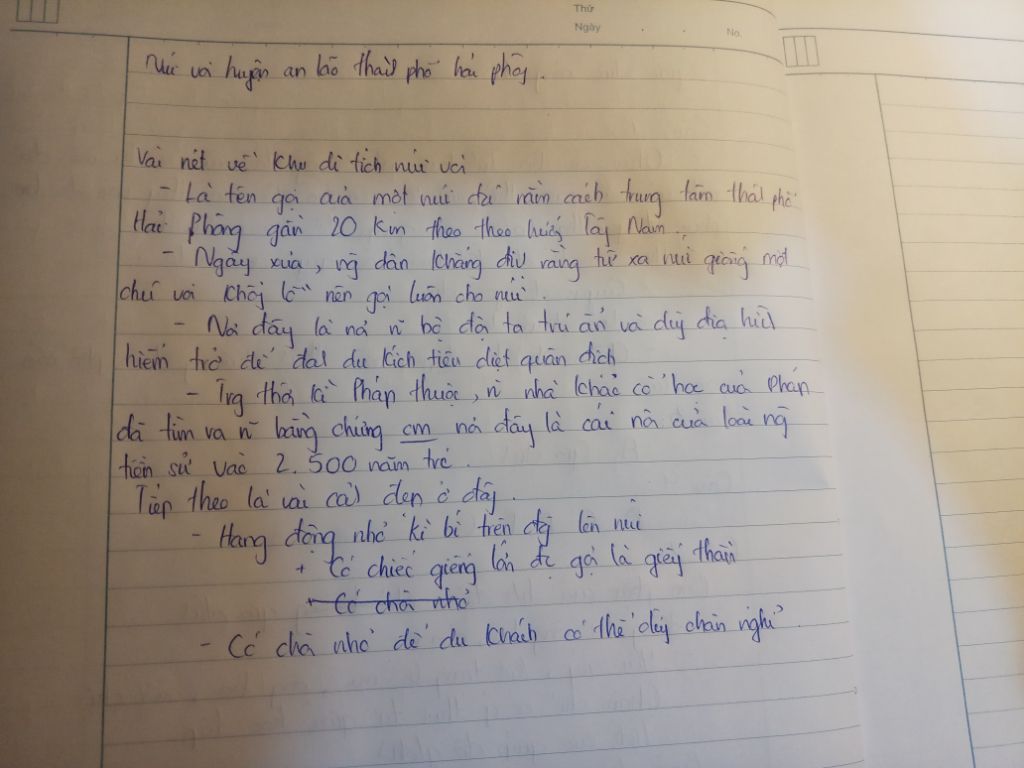 Thứ
Ngày
No.
Núi voi huyện an lão thàh phố hải phòg.
Vài nét về khu di tích núi voi
- Là tên gọi của một núi đá nằm cách trung tâm thàh phố
Hải Phòng gần 20 km theo theo hướg Tây Nam.
- Ngày xưa, ng dân khẳng địh rằng từ xa núi giống một
chú voi khổg lồ nên gọi luôn cho núi.
- Nơi đây là nơi n bộ đội ta trú ẩn và dùg địa hìh
hiểm trở để đáh du kích tiêu diệt quân địch
- Trg thời kì Pháp thuộc, n nhà khảo cổ học của Pháp
đã tìm ra n bằng chứng cm nơi đây là cái nôi của loài ng
tiền sử vào 2.500 năm trc.
Tiếp theo là vài cảh đẹp ở đây.
- Hang động nhỏ kì bí trên đg lên núi
+ Có chiếc giếng lớn đc gọi là giếg thần
+ Có chõ nhỏ
- Có chõ nhỏ để du khách có thể dừg chân nghỉ.